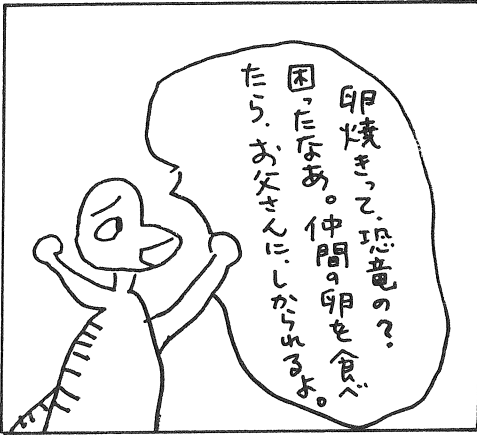 卵焼きって、恐竜の？
困ったなあ。仲間の卵を食べ
たら、お父さんに、しかられるよ。